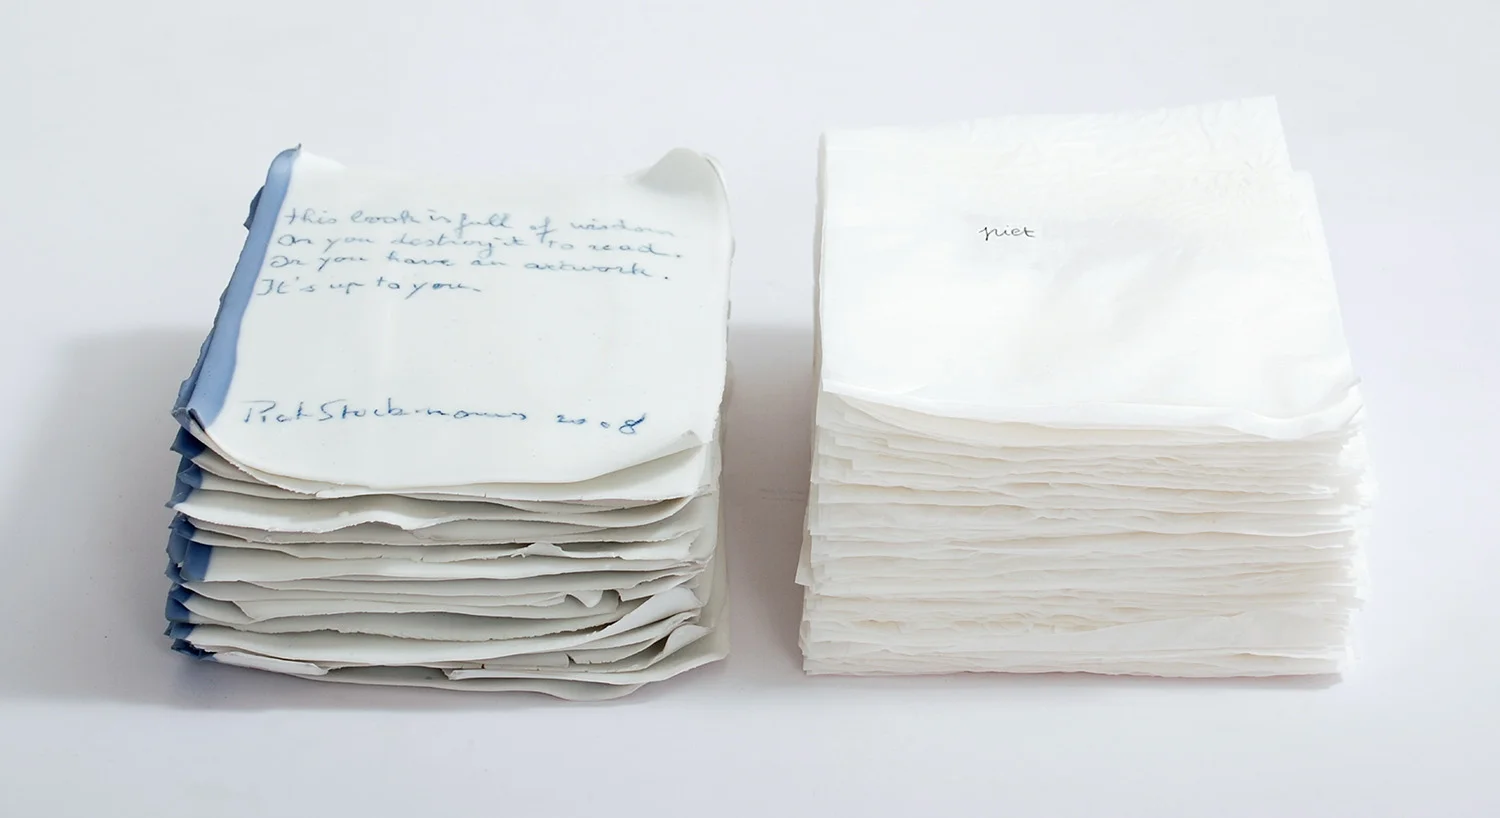 this book is full of wisdom
Or you destroy it to read.
Or you have an artwork.
It's up to you.
Piet Stockmans 2008
piet